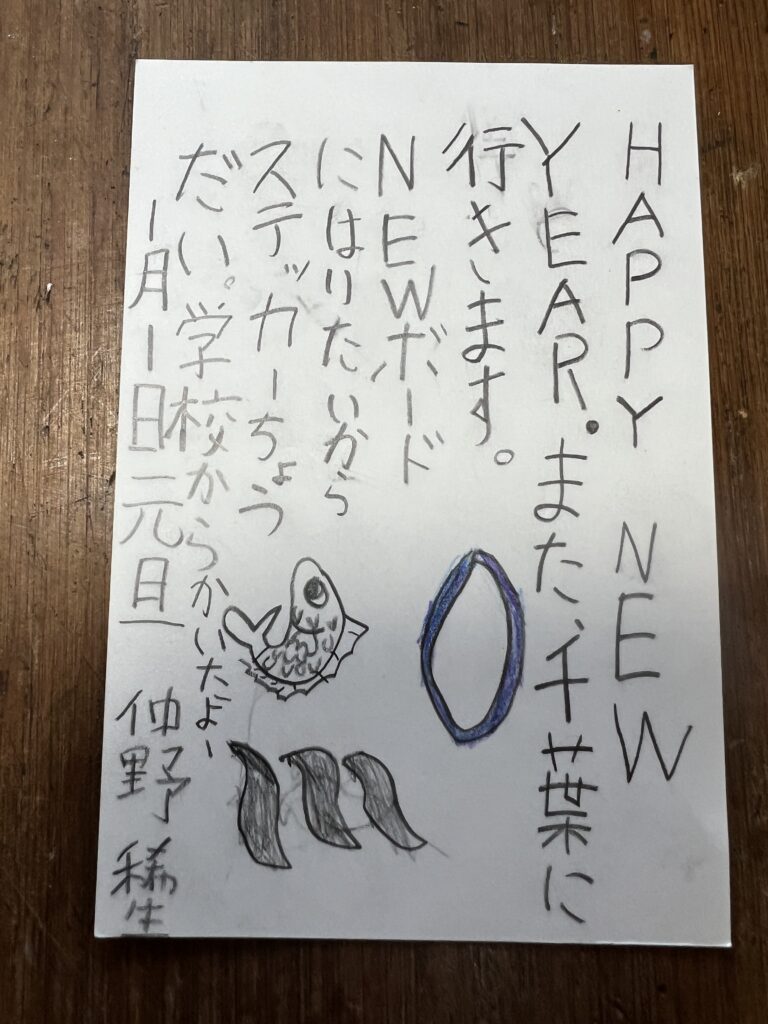 HAPPY NEW
YEAR.また、千葉に
行きます。
NEWボード
にはりたいから
ステッカーちょう
だい。学校からかいたよー
1月1日元旦
仲野稀生